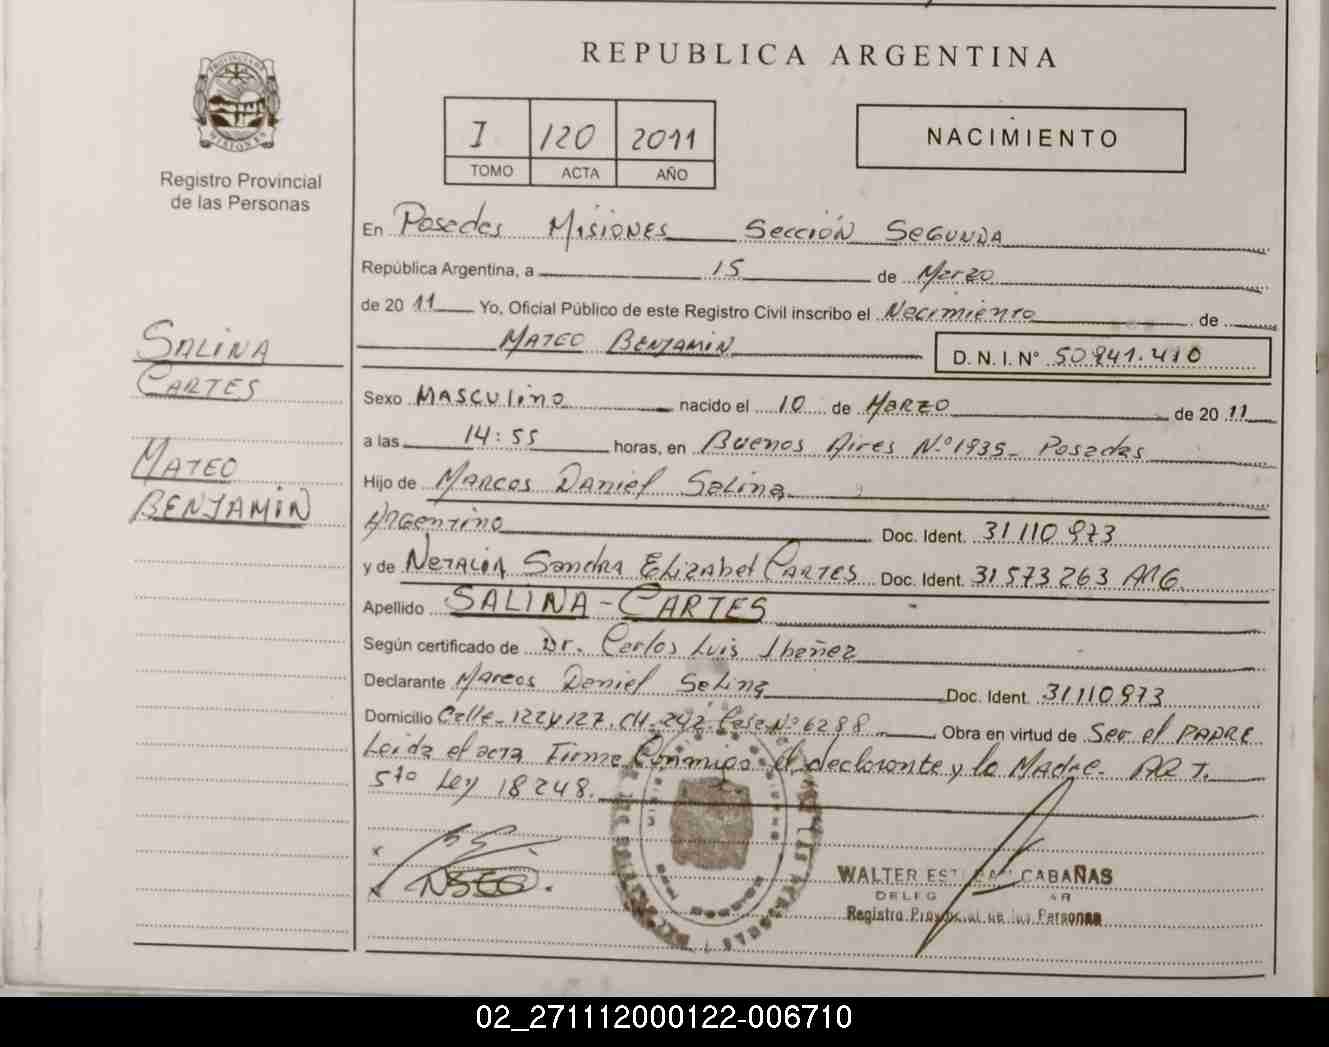 REPUBLICA ARGENTINA
PROVINCIA DE MISIONES
Registro Provincial
de las Personas
I 120 2011
TOMO ACTA AÑO
NACIMIENTO
En Posadas Misiones Sección Segunda
República Argentina, a 15 de Marzo
de 2011 Yo, Oficial Público de este Registro Civil inscribo el Nacimiento de
Mateo Benjamin D. N. I. N° 50.941.410
Salina
Cartes
Mateo
Benjamin
Sexo Masculino nacido el 10 de Marzo de 2011
a las 14:55 horas, en Buenos Aires N.º 1935- Posadas
Hijo de Marcos Daniel Salina
Argentino Doc. Ident. 31110973
y de Natalia Sandra Elizabet Cartes Doc. Ident. 31573263 ARG.
Apellido SALINA-CARTES
Según certificado de Dr. Carlos Luis Ibañez
Declarante Marcos Daniel Salina Doc. Ident. 31110973
Domicilio Calle-122y127. CH. 242. Casa Nº 6288 Obra en virtud de Ser el PADRE
Leida el acta Firma Conmigo el declarante y la Madre. ART.
5to Ley 18248.
WALTER CABAÑAS
Registro Provincial de las Personas
02_271112000122-006710